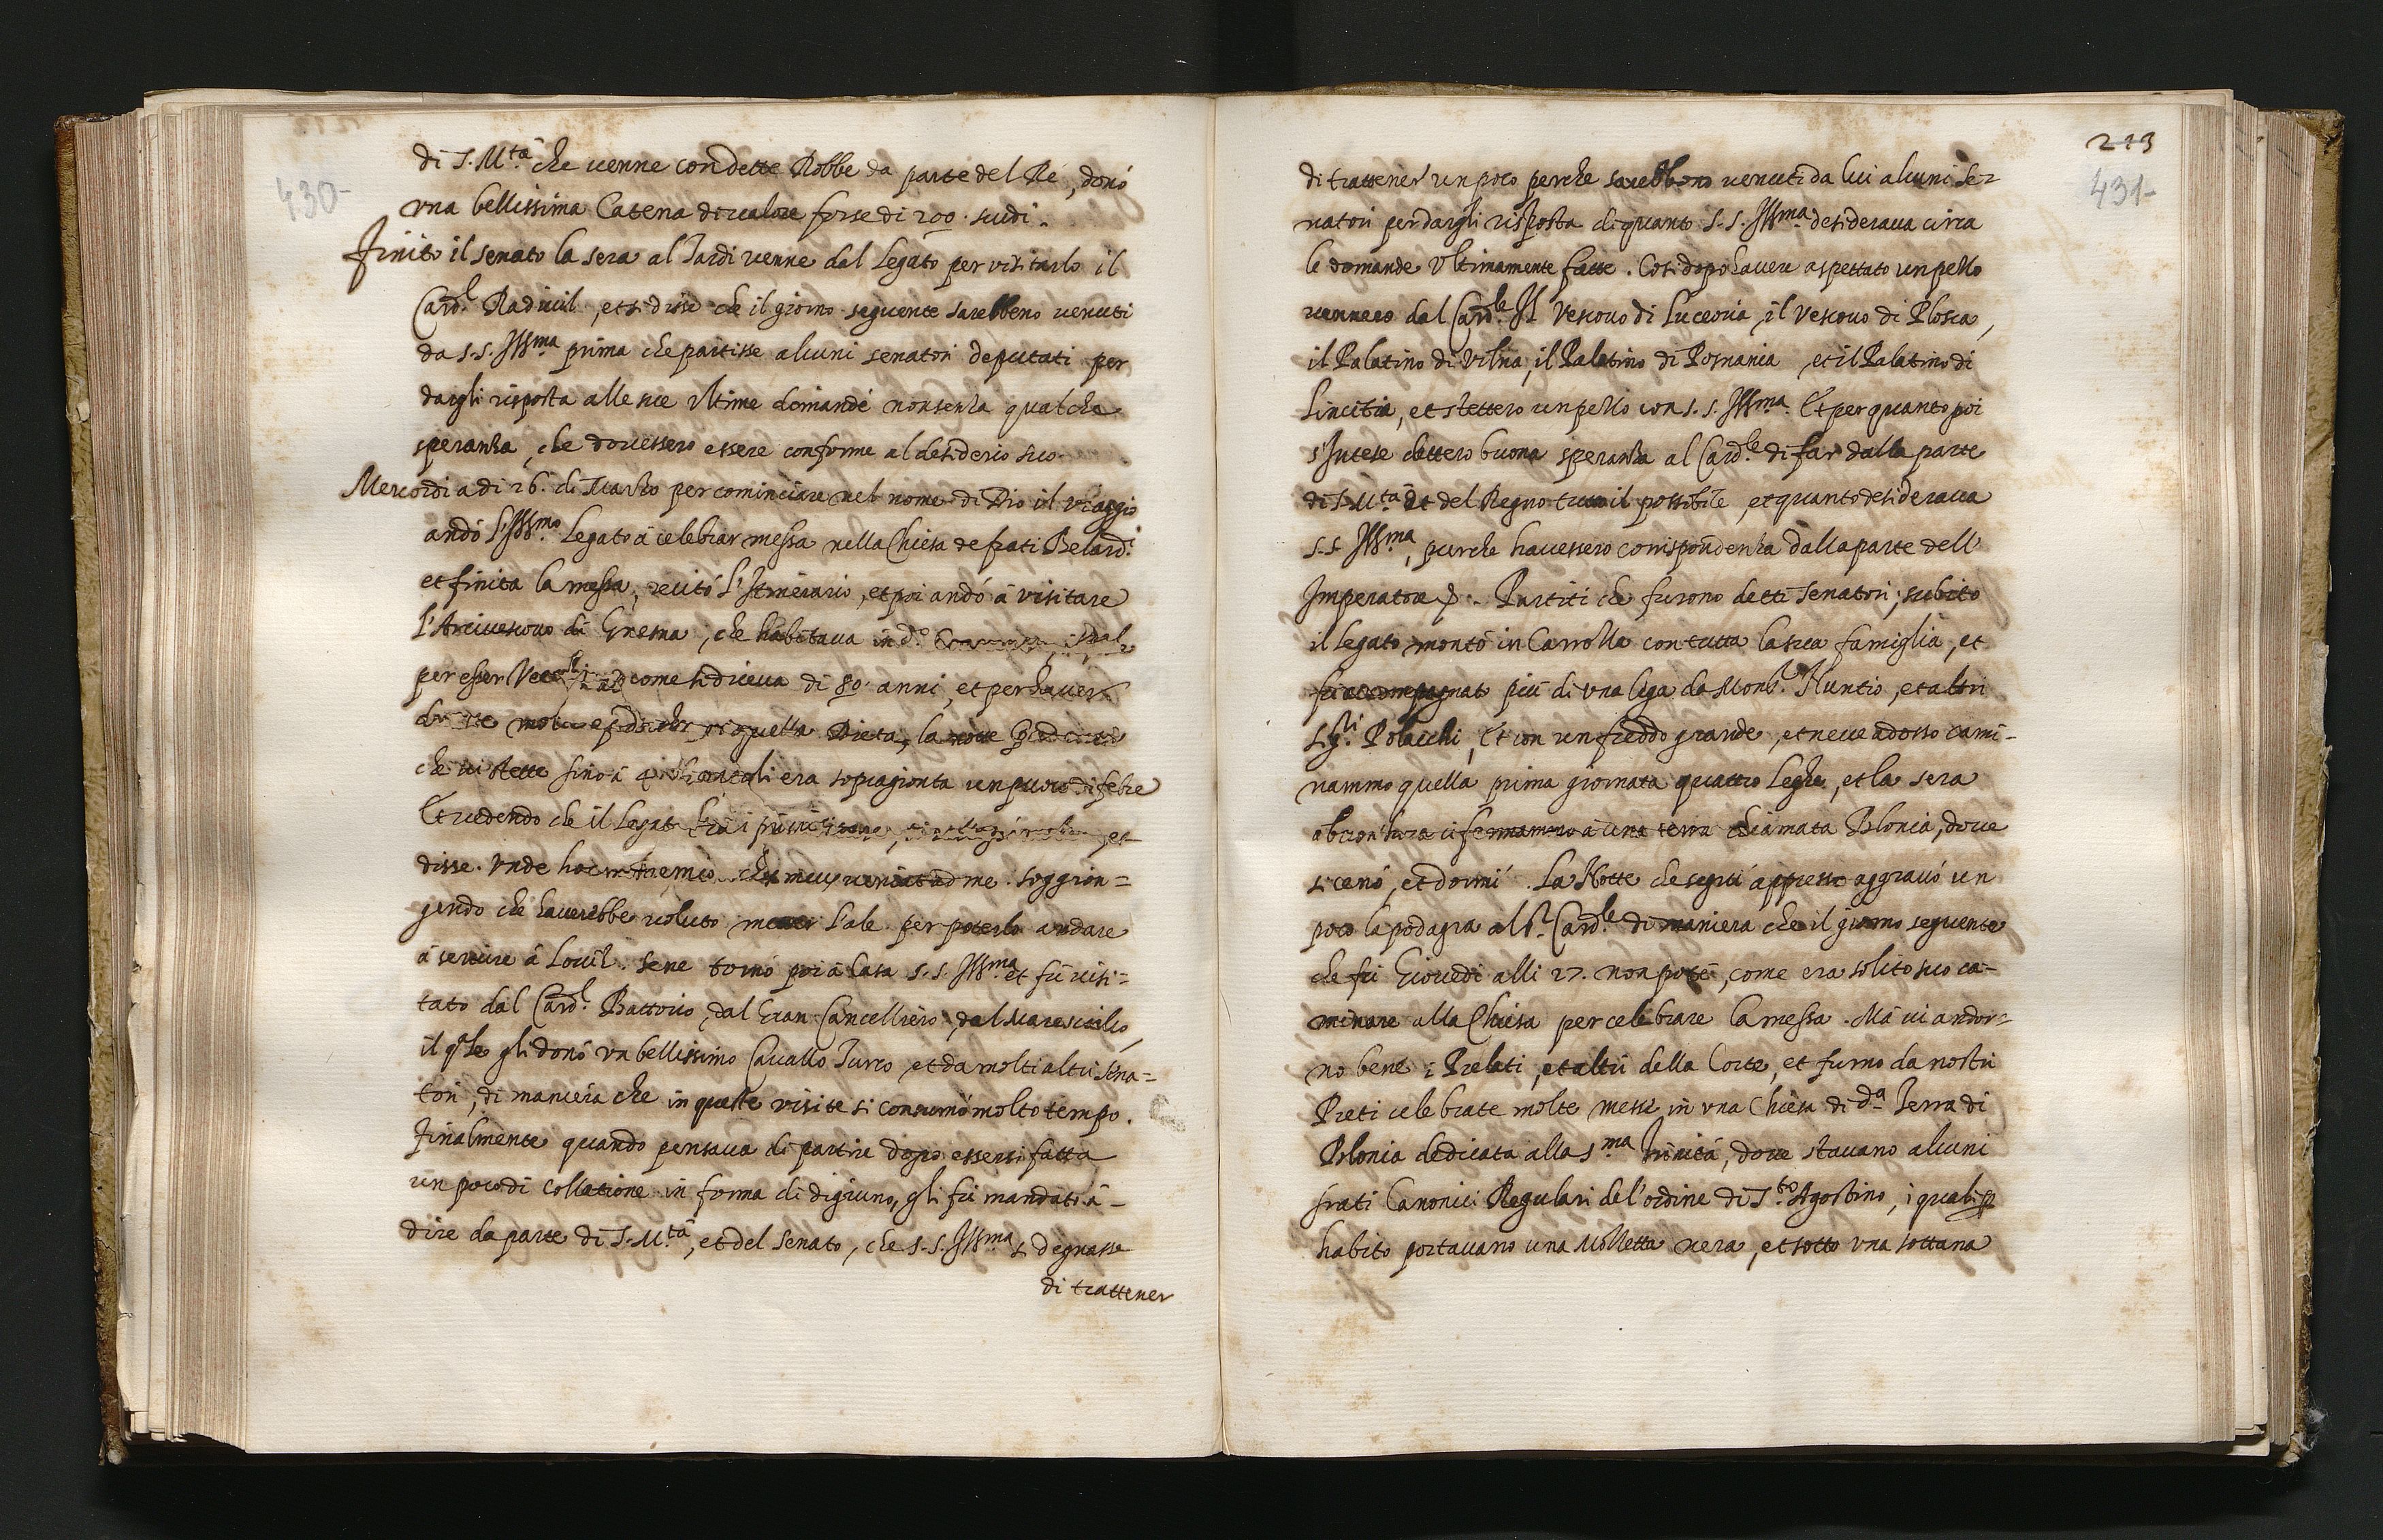 430-
di S. M.tà che uenne con dette Robbe da parte del Rè, donò
vna bellissima Catena di ualore forse di 200. scudi.
Finito il senato la sera al Tardi uenne dal Legato per visitarlo il
Card.l Radiuil, et si disse che il giorno seguente sarebbeno uenuti
da S.S. Ill.ma prima che partisse alcuni senatori deputati per
dargli risposta alle sue vltime domande non senza qualche
speranza, che douessero essere conforme al desiderio suo.
Mercordi a di 26. di Marzo per cominciare nel nome di Dio il viaggio
andò l'Ill.mo Legato à celebrar messa nella Chiesa de frati Belard.i
et finita la messa, recitò l'Itinerario, et poi andò à visitare
l'Arciuescouo di Gnesna, che habitaua in d.o
per esser come si diceua di 80. anni, et per hauer
quella Dieta, la
che ui stette fino à gli era sopragionta un puoco di febre
Et uedendo che il Legato et
disse. Vnde hoc ueniat ad me. soggion=
gendo che hauerebbe uoluto metter l'ale per poterlo andare
à seruire à Louil. Se ne tornò poi à Casa S.S. Ill.ma et fù uisi=
tato dal Card.l Battorio, dal Gran Cancelliero, dal Marescialco,
il q.le gli donò vn bellissimo Cauallo Turco, et da molti altri Sena=
tori, di maniera che in queste visite si consumò molto tempo.
Finalmente quando pensaua di partire dopo essersi fatta
un poco di Collatione in forma di digiuno, gli fù mandato à
dire da parte di S. M.tà, et del Senato, che S.S. Ill.ma si degnasse
di trattener
213
431-
di trattener un poco perche sarebbeno uenuti da lui alcuni Se=
natori per dargli risposta di quanto S.S. Ill.ma desideraua circa
le domande Vltimamente fatte. Cosi dopo hauere aspettato un pezzo
uennero dal Card.le Il Vescouo di Luceoria, il Vescouo di Plosca,
il Palatino di Vilna, il Palatino di Posnania, et il Palatino di
Lincitia, et stettero un pezzo con S.S. Ill.ma. Et per quanto poi
s'Intese dettero buona speranza al Card.le di far dalla parte
di S. M.tà et del Regno tutto il possibile, et quanto desideraua
S.S. Ill.ma, purche hauessero corrispondenza dalla parte dell'
Imperatore. Partiti che furono detti Senatori, subito
il Legato montò in Carrozza con tutta la sua famiglia, et
fù accompagnato più di vna lega da Mons.r Nuntio, et altri
Sig.ri Polacchi, Et con un freddo grande, et neue adosso cami=
nammo quella prima giornata quattro Leghe, et la sera
a buon'hora ci fermammo à una terra chiamata Blonia, doue
si cenò, et dormì. La Notte che seguì appresso aggrauò un
poco la podagra al S.r Card.le di maniera che il giorno seguente
che fù Giouedi alli 27. non potè, come era solito suo ca=
minare alla Chiesa per celebrare la messa. Mà ui andor=
no bene i Prelati, et altri della Corte, et furno da nostri
Preti celebrate molte messe in vna Chiesa di d.a Terra di
Blonia dedicata alla S.ma Trinità, doue stauano alcuni
frati Canonici Regulari del'ordine di S.to Agostino, i quali p
habito portauano una Mozzetta nera, et sotto vna sottana